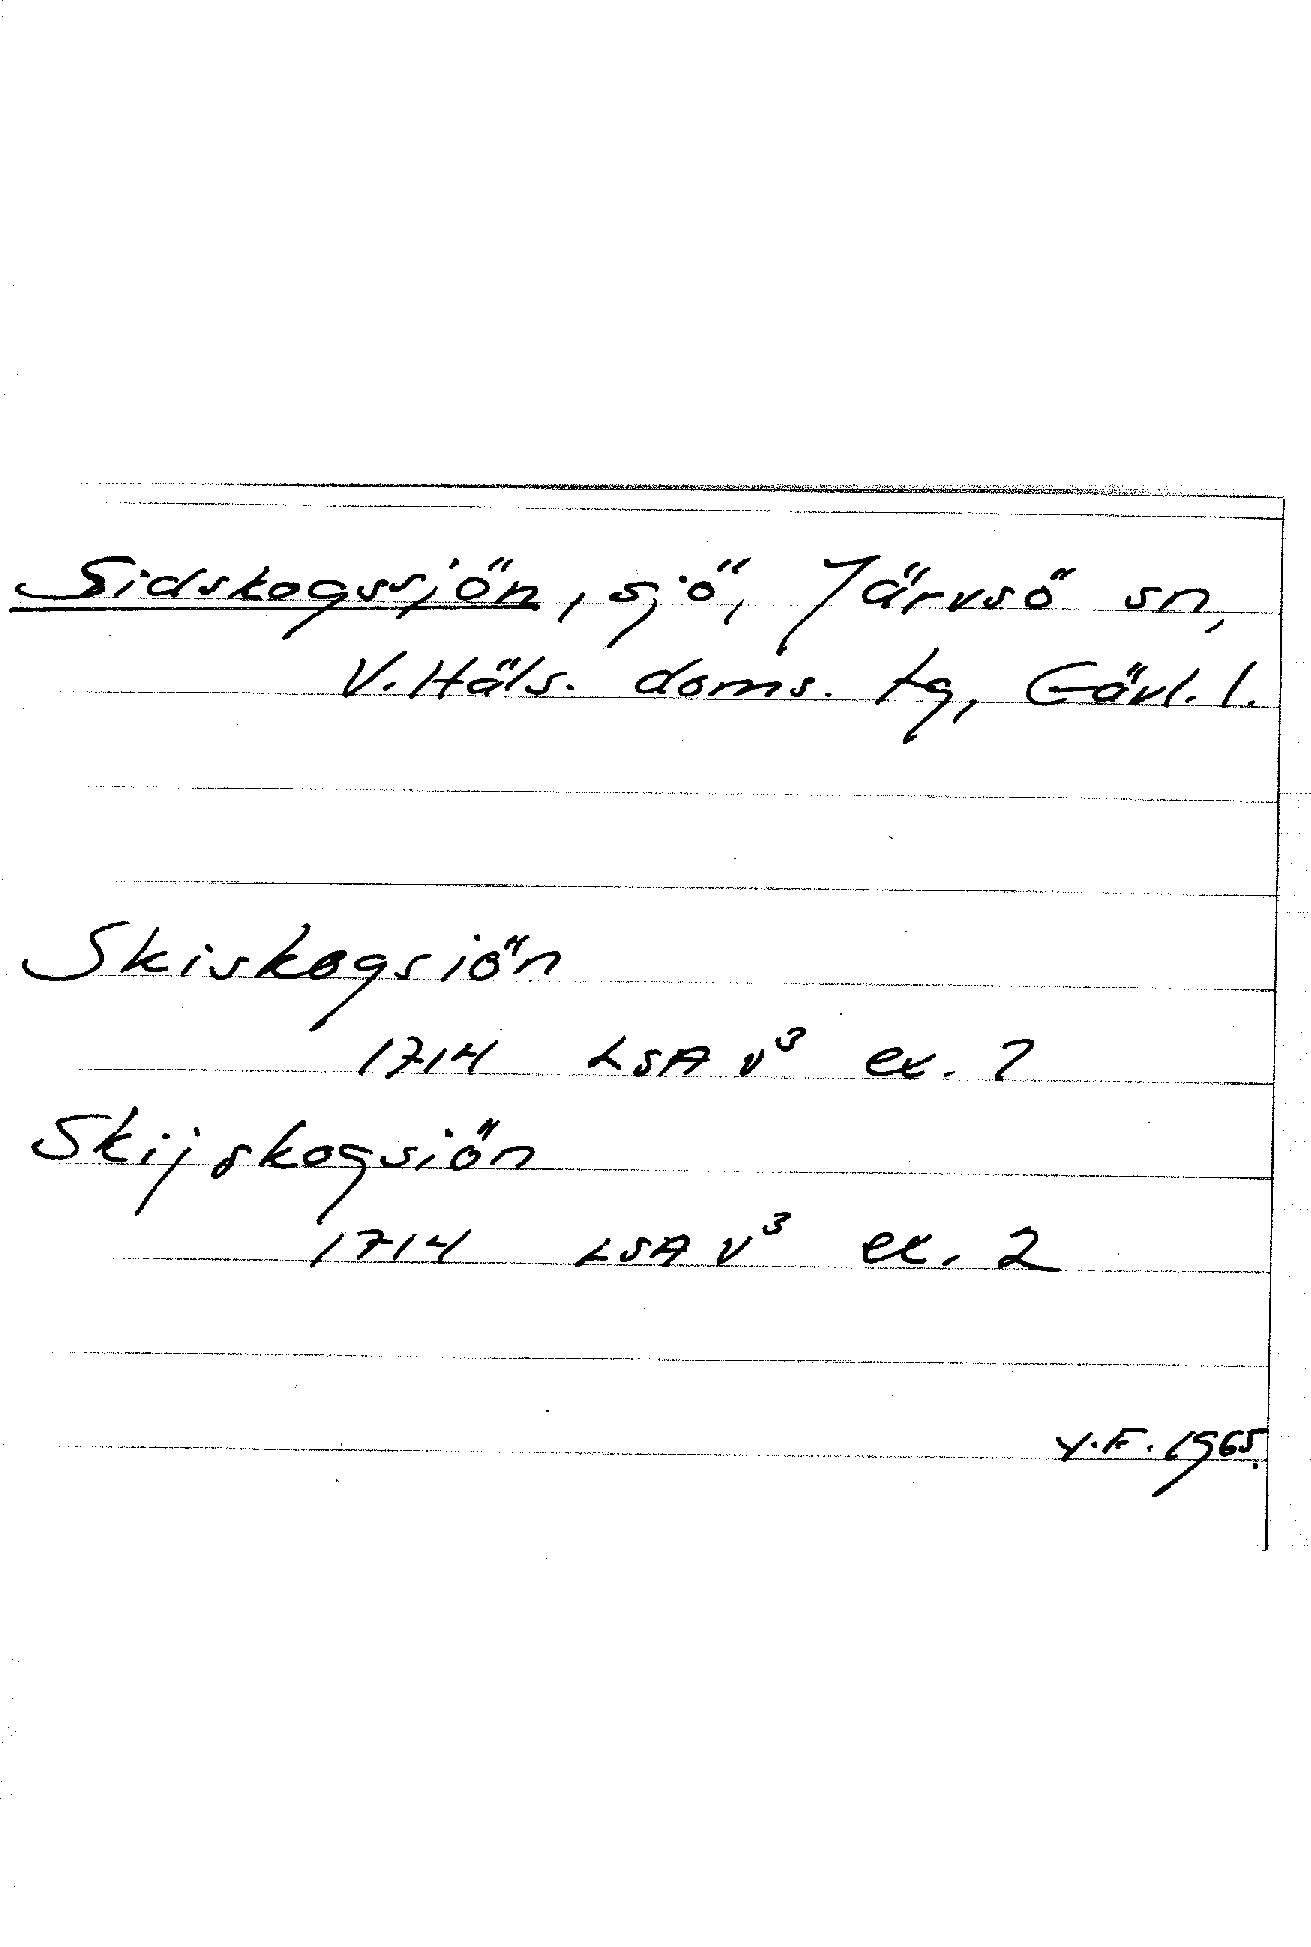 Sidskogssjön, sjö, Järvsö sn,
V. Häls. doms. tg, Gävl. l.
Skiskogsiön
1714 LSA V³ ex. 1
Skijskogsiön
1714 LSA V³ ex. 2
Y.F. 1965.